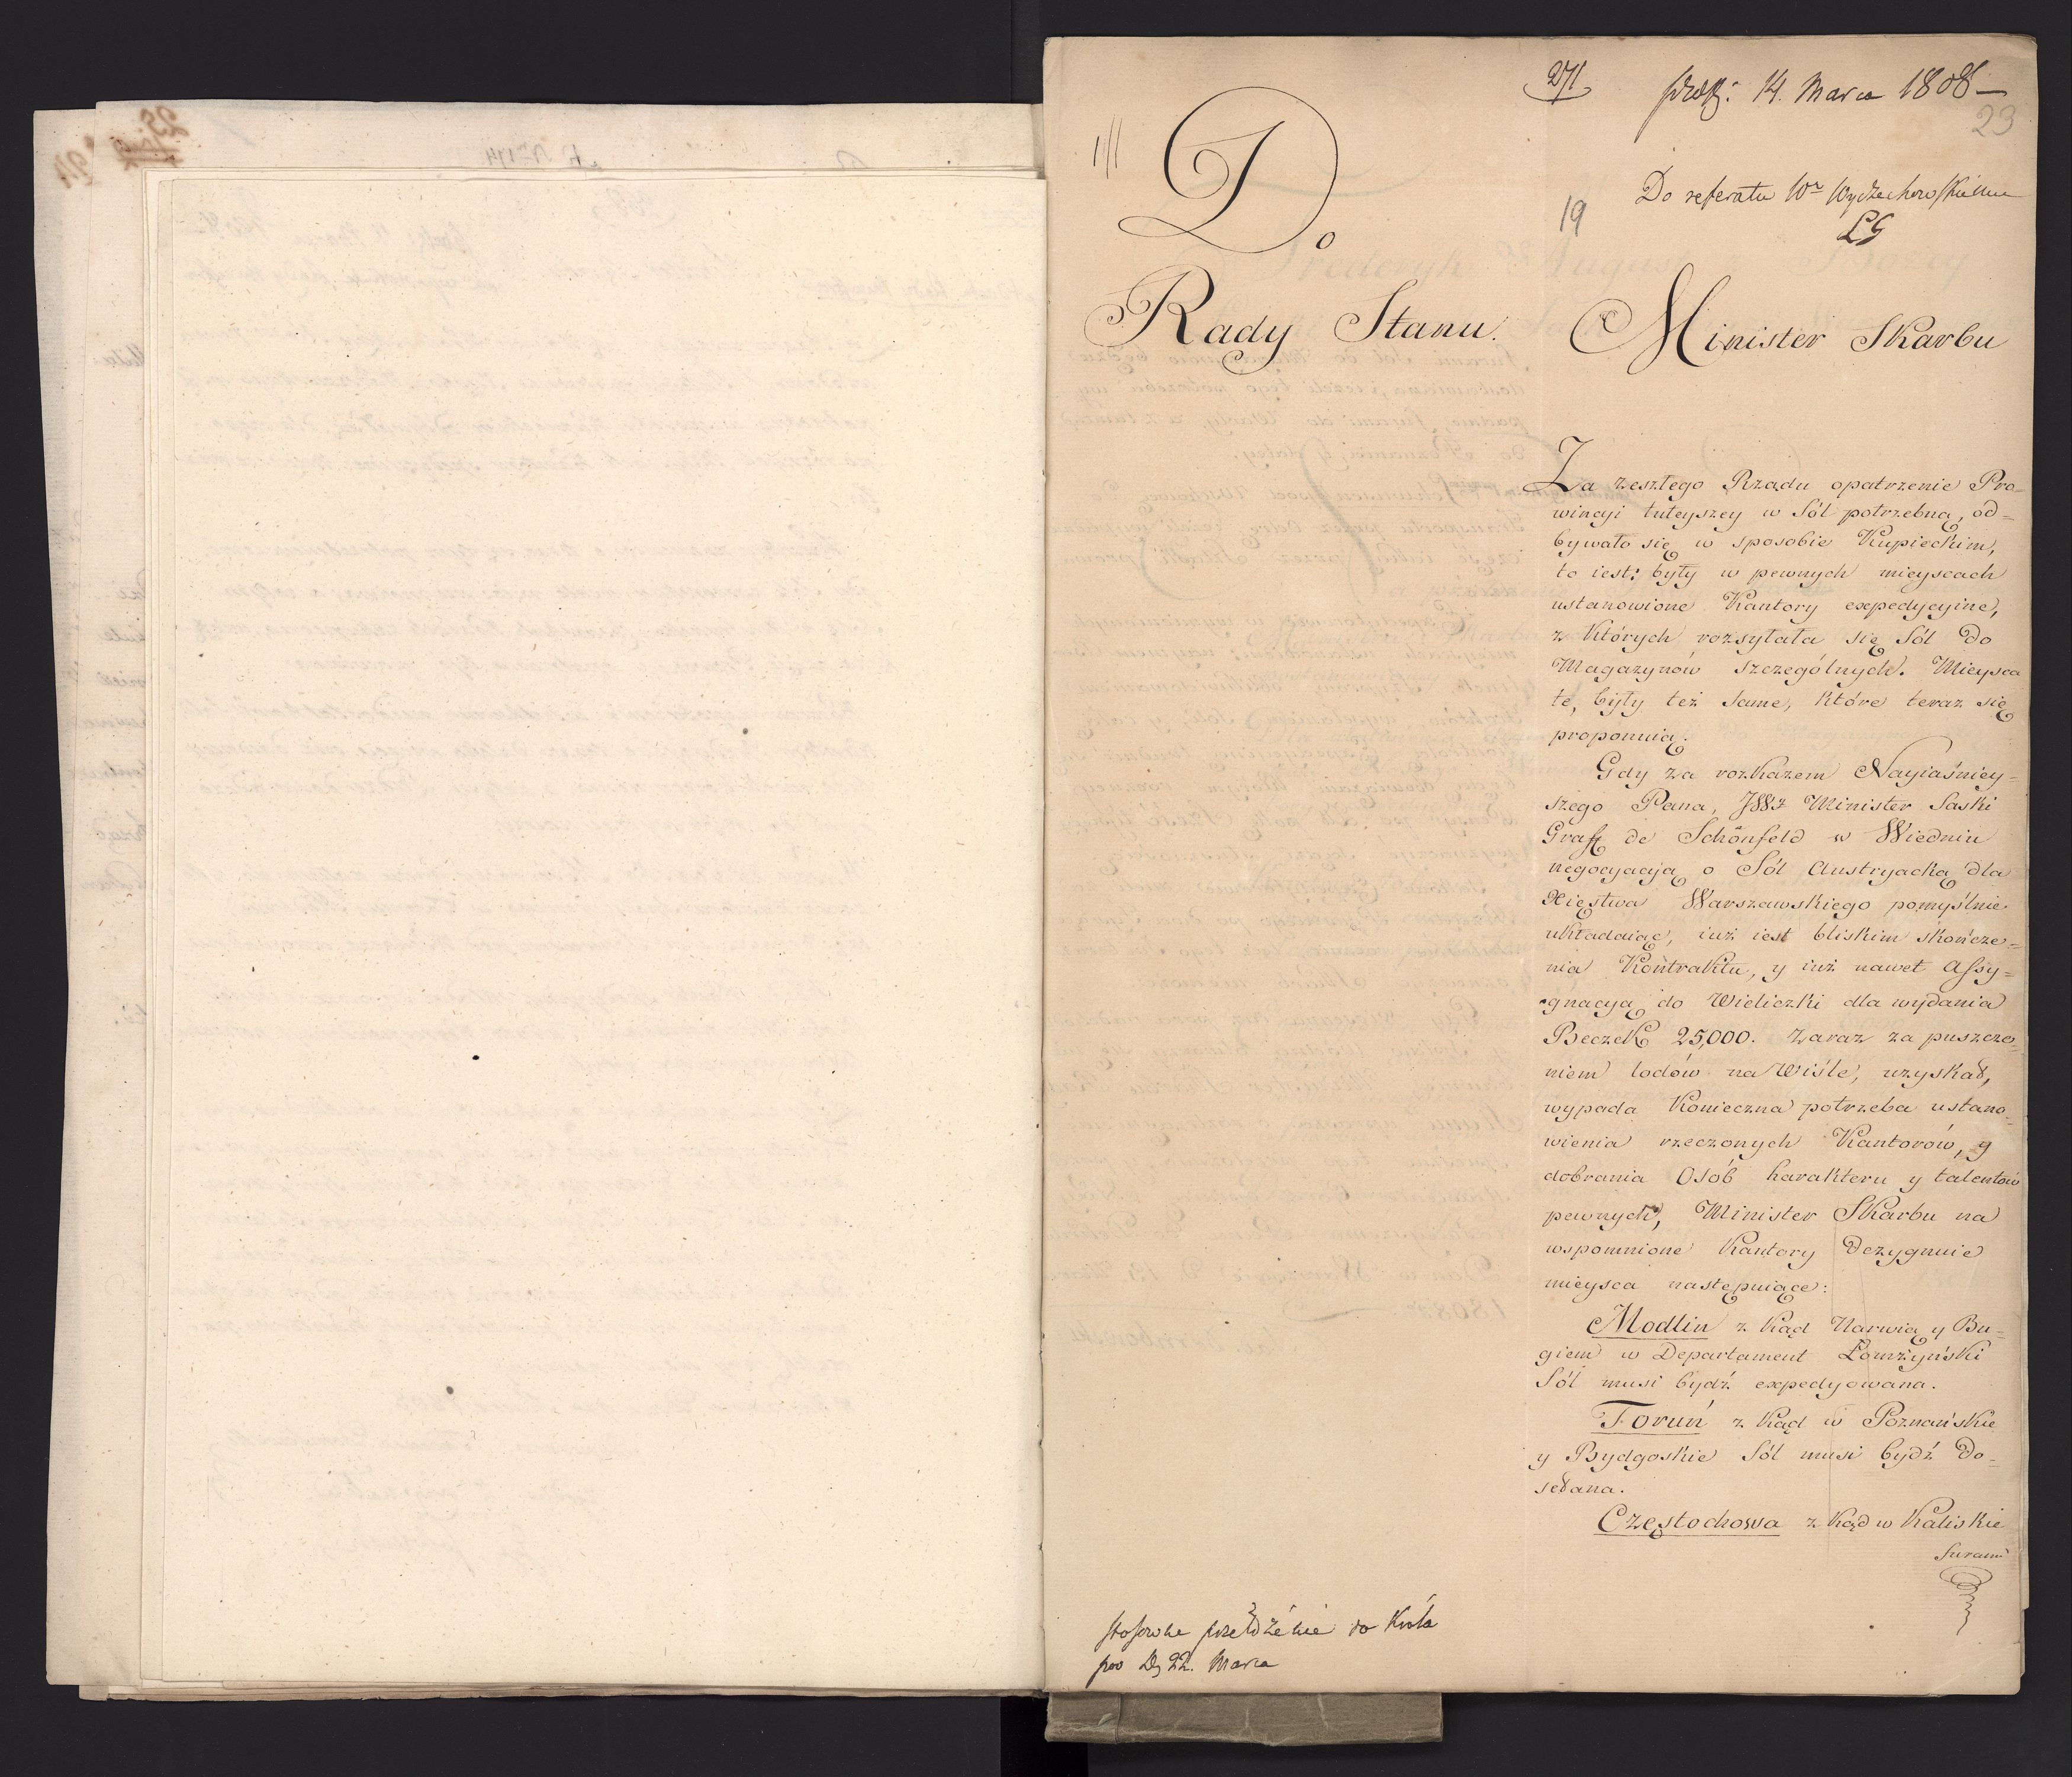 271
14. Marca 1808
23
Do referatu Wo Wyczechowskiemu
LG
19
Do
Rady Stanu.
Minister Skarbu
Za zeszłego Rządu opatrzenie Pro=
wincyi tuteyszey w Sól potrzebną, od=
bywało się w sposobie Kupieckim,
to iest: były w pewnych mieyscach
ustanowione Kantory expedycyine,
z Których rozsyłała się Sól do
Magazynów szczególnych. Mieysca
te, były też same, które teraz się
proponuią.
Gdy za rozkazem Nayiaśniey=
szego Pana, JWż Minister Saski
Graff de Schönfeld w Wiedniu
negocyacyą o Sól Austryacką dla
Xięstwa Warszawskiego pomyślnie
układaiąc, iuż iest bliskim skończe=
nia Kontraktu, y iuż nawet Assy=
gnacyą do Wieliczki dla wydania
Beczek 25,000. zaraz za puszcze=
niem lodów na Wiśle, uzyskał,
wypada Konieczna potrzeba ustano=
wienia rzeczonych Kantorów, y
dobrania Osób harakteru y talentów
pewnych, Minister Skarbu na
wspomnione Kantory dezygnuie
mieysca następuiące:
Modlin z kąd Narwią y Bu=
giem w Departament Łomżyński
Sól musi bydź expedyowana.
Toruń z kąd w Poznańskie
y Bydgoskie Sól musi bydź do=
słana.
Częstochowa z kąd w Kaliskie
furami
stosowne przełożenie do Króla
pod D. 22. Marca